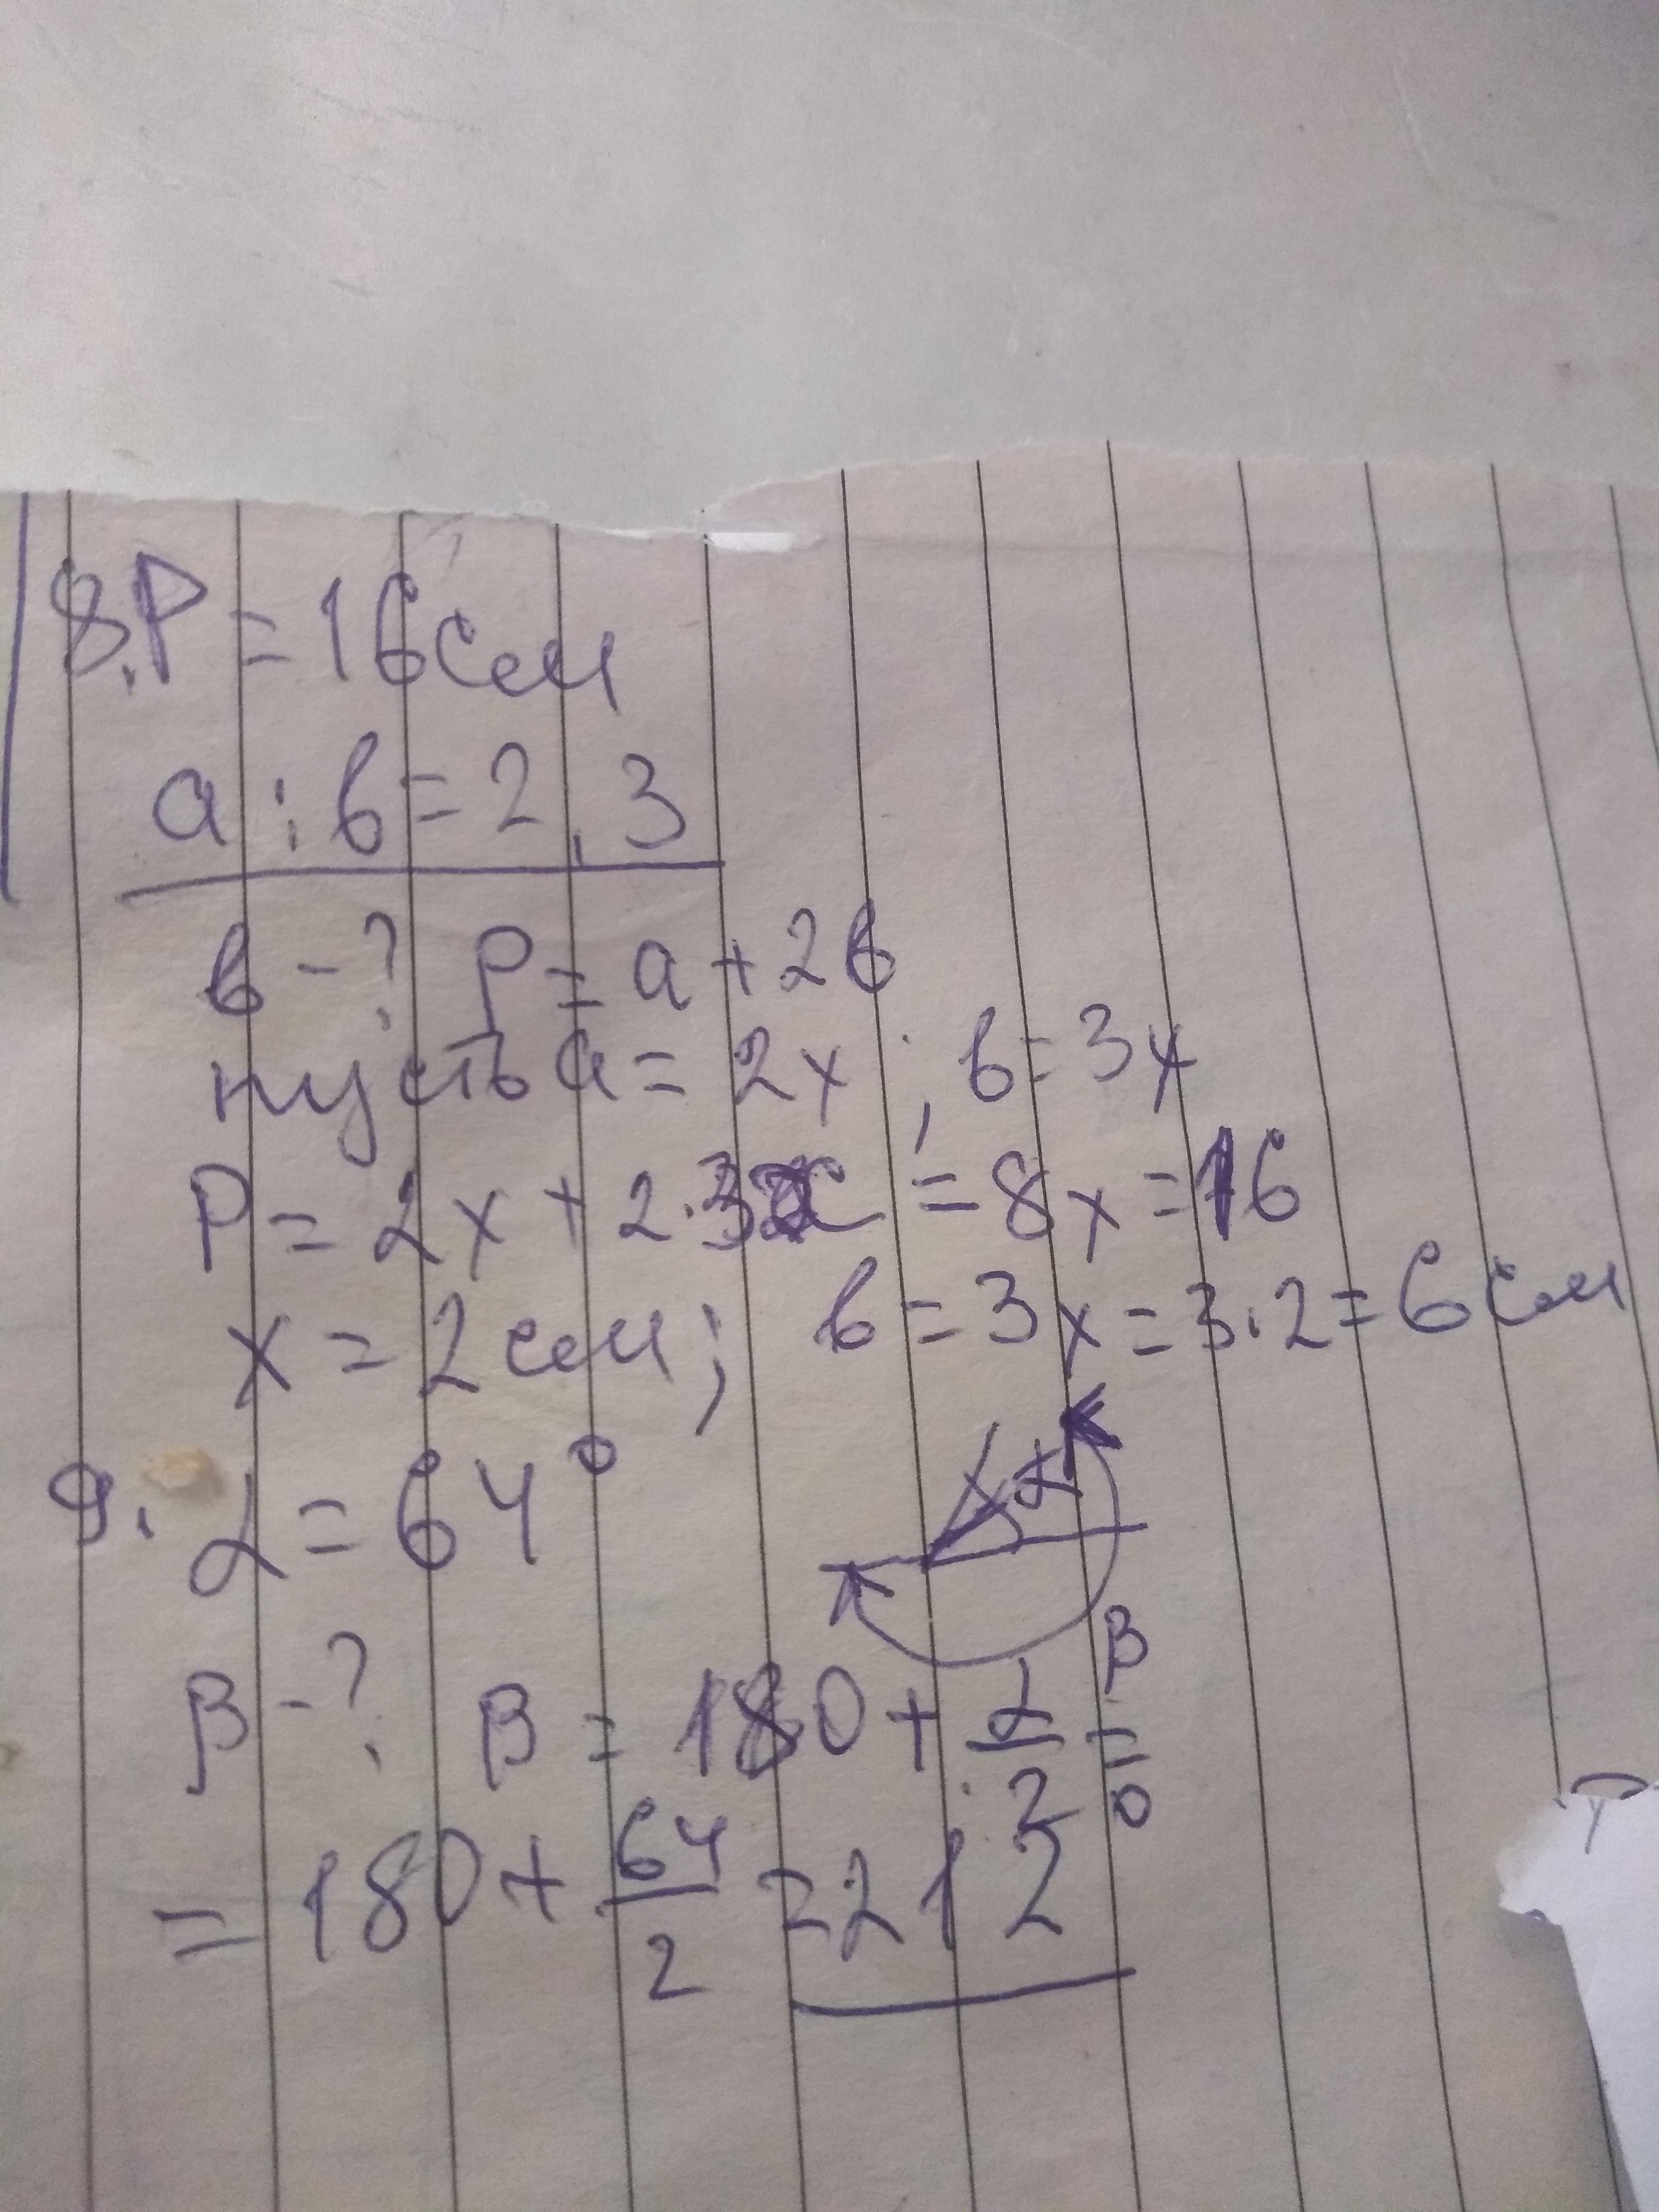 8. P = 16 см
a : b = 2,3
b - ? P = a + 2b
пусть a = 2x ; b = 3x
P = 2x + 2·3x = 8x = 16
x = 2 см ; b = 3x = 3·2 = 6 см
9. α = 64°
α
β
β - ? β = 180 + α/2 =
= 180 + 64/2 = 212°